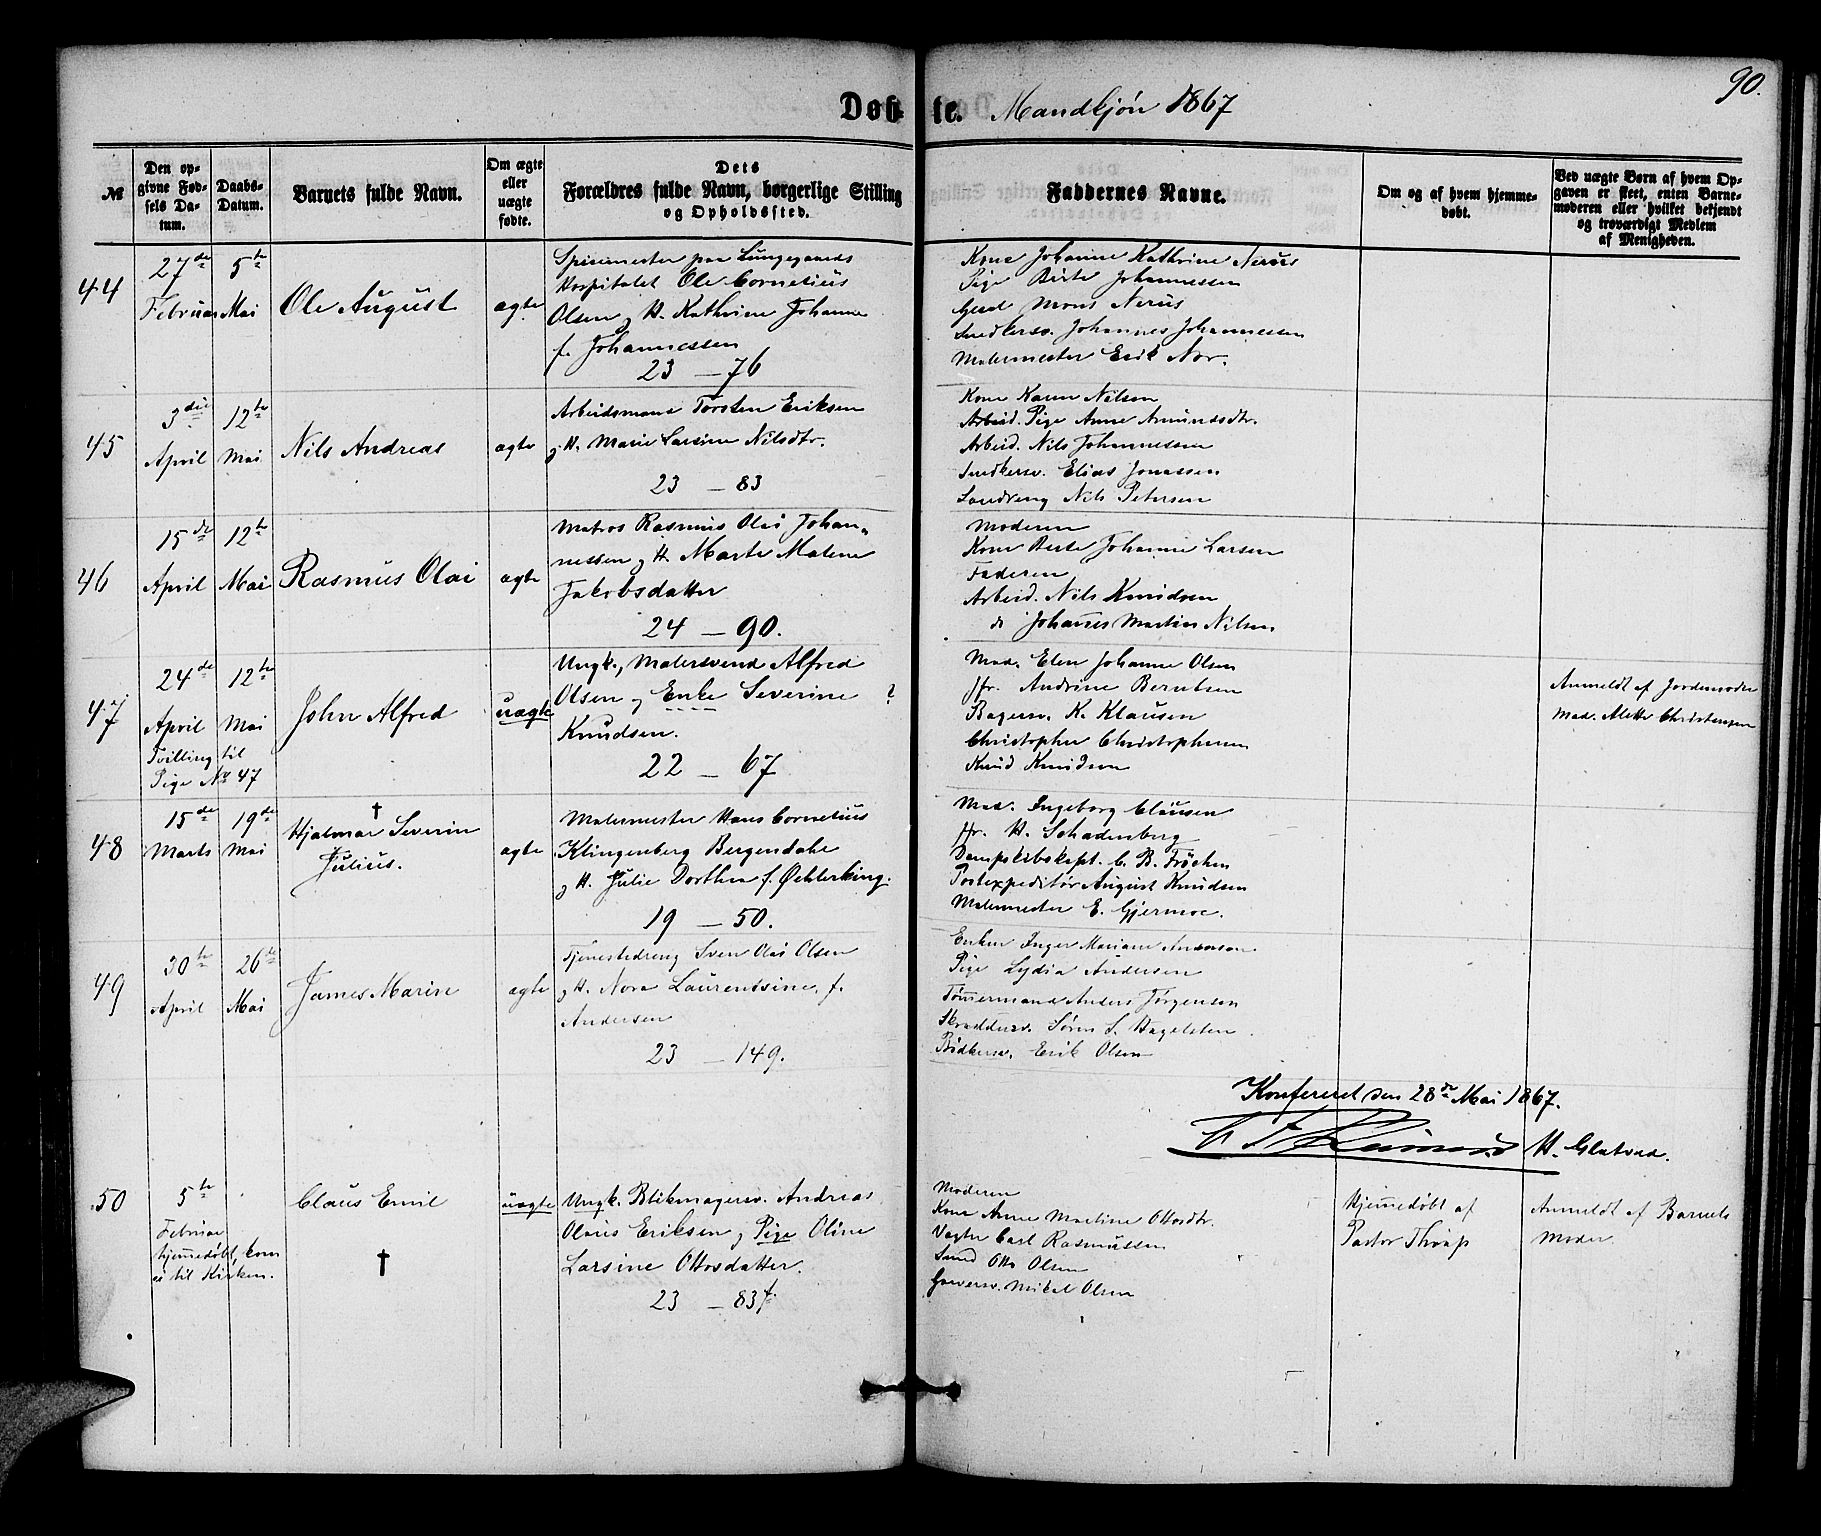 90.
Døbte. Mandkjøn 1867
№
Den opgivne Fødsels Datum.
Daabs-Datum.
Barnets fulde Navn.
Om ægte eller uægte fødte.
Dets Forældres fulde Navn, borgerlige Stilling og Opholdssted.
Faddernes Navne.
Om og af hvem hjemmedøbt.
Ved uægte Børn af hvem Opgaven er skeet, enten Barnemoderen eller hvilket bekjendt og troværdigt Medlem af Menigheden.
44
27de Februar
5te Mai
Ole August
ægte
Spisemester paa Lungegaards
Hospitalet Ole Cornelius
Olsen og H. Kathrine Johanne
f. Johannessen
23 – 76
Kone Johanne Kathrine Nerus
Pige Berte Johannessen
Mons Nerus
Snedkersv. Johannes Johannessen
Malermester Erik Nor.
45
3die April
12te Mai
Nils Andreas
ægte
Arbeidsmand Torsten Eriksen
og H. Marie Larsine Nilsdtr.
23 – 83
Kone Karen Nilsen
Arbeid. Pige Anne Amundsdtr.
Arbeid. Nils Johannessen
Snedkersv. Elias Jonassen
Nils Petersen
46
15de April
12te Mai
Rasmus Olai
ægte
Matros Rasmus Olai Johan-
nessen og H. Marte Malene
Jakobsdatter
24 – 90.
Moderen
Kone Berte Johanne Larsen
Faderen
Arbeid. Nils Knudsen
do Johannes Martin Nilsen
47
24de April
12te Mai
Tvilling til
Pige No 47
John Alfred
uægte
Ungk., Malersvend Alfred
Olsen og Enke Severine ?
Knudsen.
22 – 67
Mad. Elen Johanne Olsen
Jfr. Andrine Berntsen
Bagersv. K. Klausen
Christopher Christophersen
Knud Knudsen
Anmeldt af Jordemoder
Mad. Mette Christensen
48
15de Marts
19de Mai
†
Hjalmar Severin
Julius.
ægte
Malermester Hans Cornelius
Klingenberg Bergendahl
og H. Julie Dorthea f. Øehlerking.
19 – 50.
Mad. Ingeborg Clausen
Jfr. H. Schadenberg
Dampskibskapt. C. B. Frøchen
Postexpeditør August Knudsen
Malermester E. Gjermoe.
49
30te April
26de Mai
James Marin
ægte
Tjenestedreng Sven Olai Olsen
og H. Nora Laurentsine, f.
Andersen
23 – 149.
Enken Inger Mariane Andersen
Pige Lydia Andersen
Tømmermand Anders Jørgensen
Skræddersv. Søren S. Hagelsten
Bødkersv. Erik Olsen
Konfereret den 28de Mai 1867.
50
5te Februar
hjemmedøbt, kom
ei til Kirken.
Claus Emil
†
uægte
Ungk. Blikmagersv. Andreas
Olaus Eriksen og Pige Oline
Larsine Ottosdatter.
23 – 83
Moderen
Kone Anne Martine Ottosdtr.
Vægter Carl Rasmussen
Otto Olsen
Garversv. Mikal Olsen
Hjemmedøbt af
Pastor Thrap
Anmeldt af Barnets
Moder.